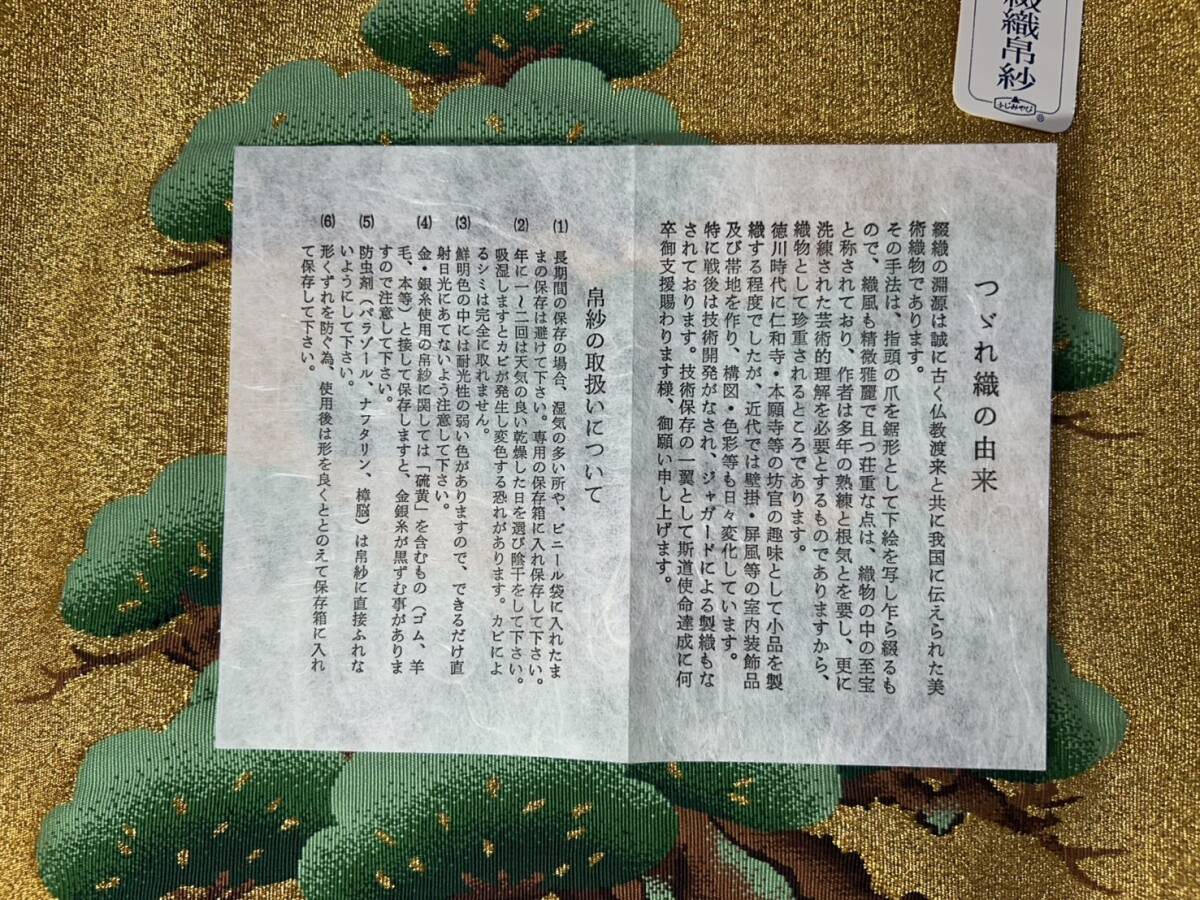 綴織帛紗
ふじみやび
®
つゞれ織の由来
綴織の淵源は誠に古く仏教渡来と共に我国に伝えられた美
術織物であります。
その手法は、指頭の爪を鋸形として下絵を写し乍ら綴るも
ので、織風も精微雅麗で且つ荘重な点は、織物の中の至宝
と称されており、作者は多年の熟練と根気とを要し、更に
洗練された芸術的理解を必要とするものでありますから、
織物として珍重されるところであります。
徳川時代に仁和寺・本願寺等の坊官の趣味として小品を製
織する程度でしたが、近代では壁掛・屏風等の室内装飾品
及び帯地を作り、構図・色彩等も日々変化しています。
特に戦後は技術開発がなされ、ジャガードによる製織もな
されております。技術保存の一翼として斯道使命達成に何
卒御支援賜わります様、御願い申し上げます。
帛紗の取扱いについて
(1) 長期間の保存の場合、湿気の多い所や、ビニール袋に入れたま
まの保存は避けて下さい。専用の保存箱に入れ保存して下さい。
(2) 年に一〜二回は天気の良い乾燥した日を選び陰干をして下さい。
吸湿しますとカビが発生し変色する恐れがあります。カビによ
るシミは完全に取れません。
(3) 鮮明色の中には耐光性の弱い色がありますので、できるだけ直
射日光にあてないよう注意して下さい。
(4) 金・銀糸使用の帛紗に関しては「硫黄」を含むもの（ゴム、羊
毛、本等）と接して保存しますと、金銀糸が黒ずむ事がありま
すので注意して下さい。
(5) 防虫剤（パラゾール、ナフタリン、樟脳）は帛紗に直接ふれな
いようにして下さい。
(6) 形くずれを防ぐ為、使用後は形を良くととのえて保存箱に入れ
て保存して下さい。